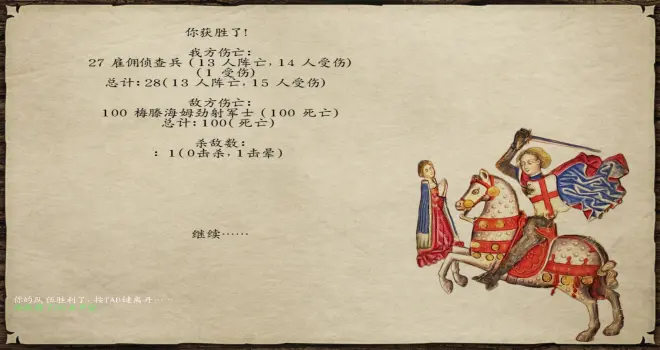 你获胜了!
我方伤亡:
27 雇佣侦查兵 (13 人阵亡, 14 人受伤)
(1 受伤)
总计: 28(13 人阵亡, 15 人受伤)
敌方伤亡:
100 梅滕海姆劲射军士 (100 死亡)
总计: 100(死亡)
杀敌数:
: 1(0击杀, 1击晕)
继续……
你的队伍胜利了, 按TAB键离开……